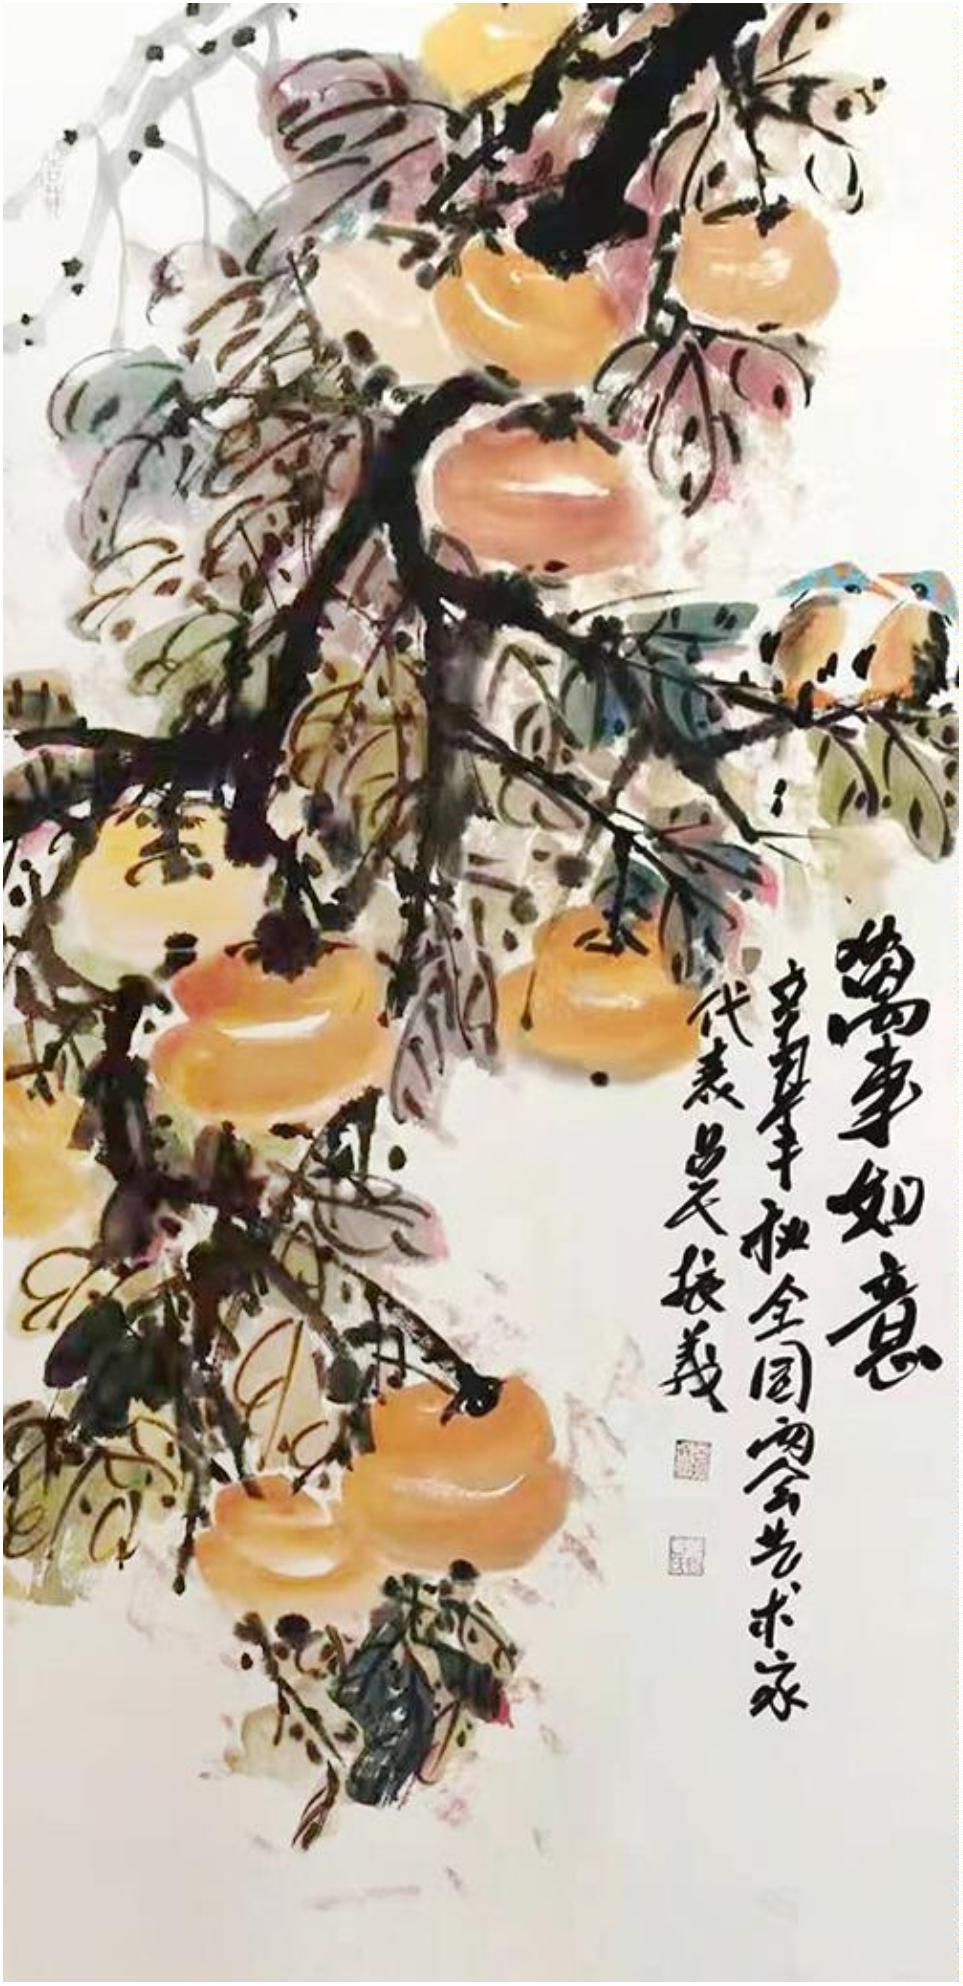 萬事如意
辛丑年秋全国两会艺术家
代表吕民振義